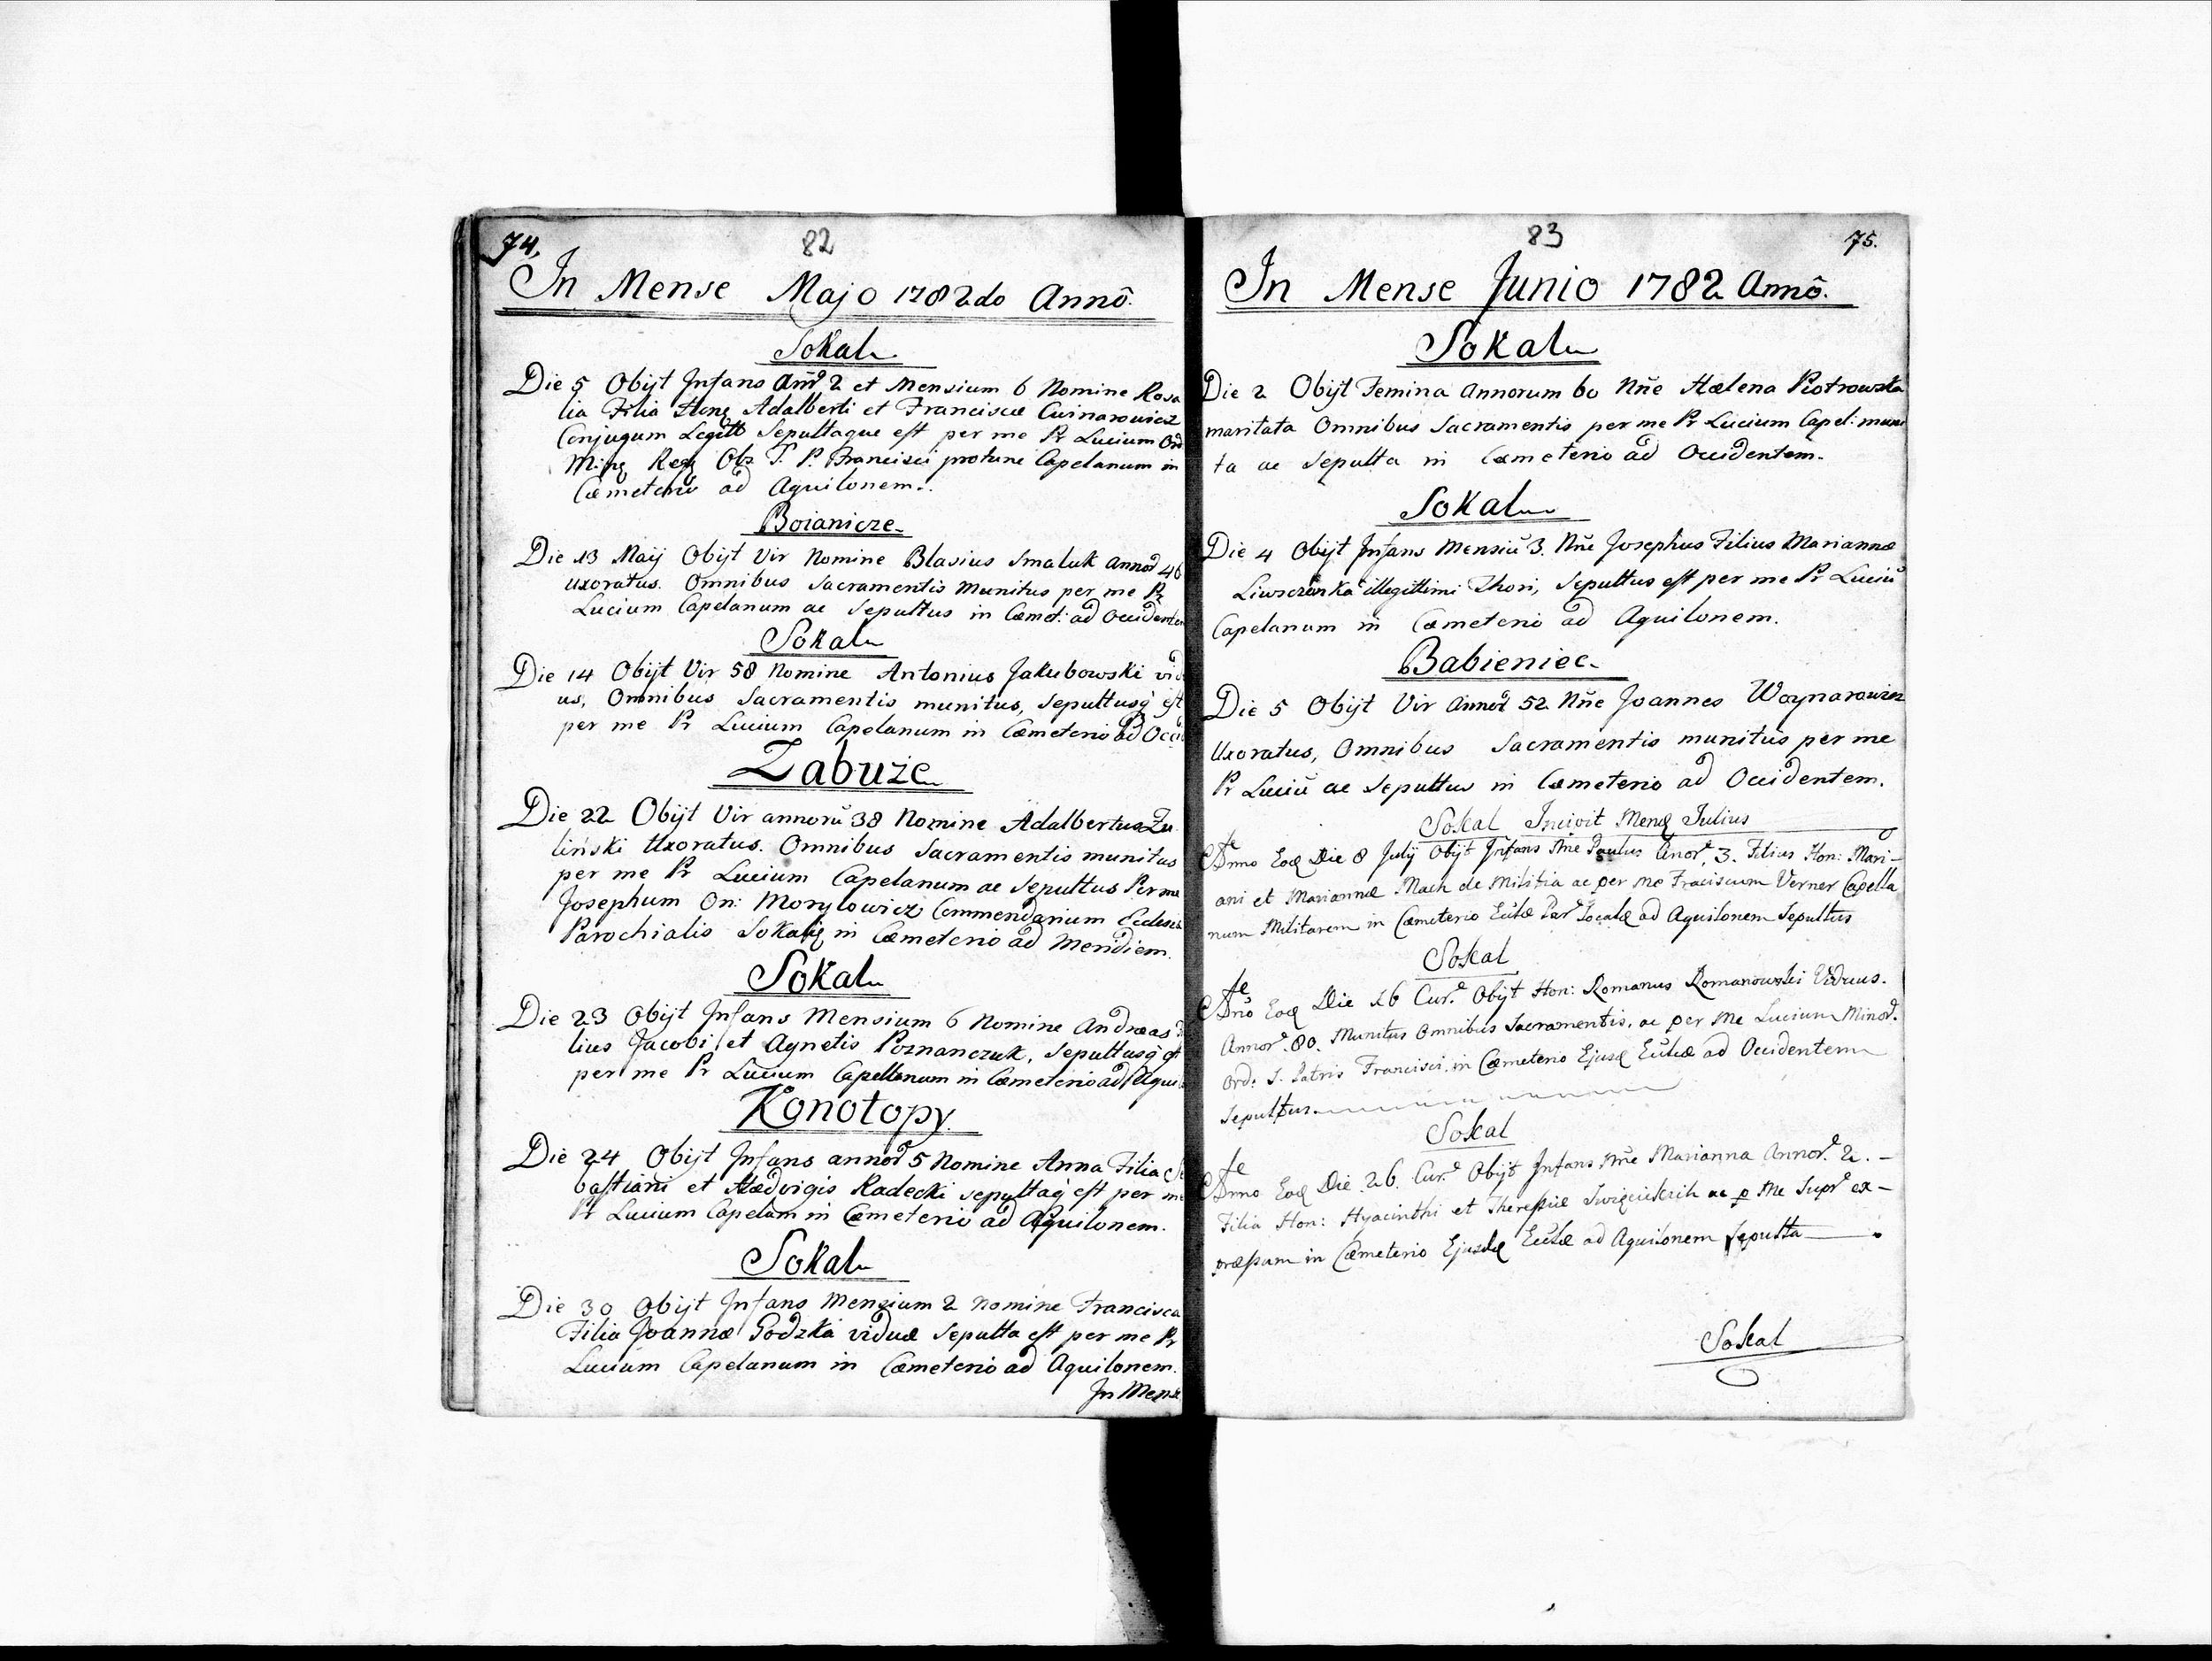 74.
82
In Mense Majo 1782do Annô.
Sokal
Die 5 Obijt Infans Annor 2 et Mensium 6 Nomine Rosa
lia Filia Hon Adalberti et Franciscæ Cuinarowicz
Conjugum Legitt Sepultaque est per me Pr Lucium Ord
Min Reg Obs S. P. Francisci protunc Capelanum in
Cæmeterio ad Aquilonem.
Boianicze
Die 13 Maij Obijt Vir Nomine Blasius Smaluk annor 46
uxoratus. Omnibus Sacramentis Munitus per me Pr
Lucium Capelanum ac Sepultus in Cæmet: ad Occidentem
Sokal
Die 14 Obijt Vir 58 Nomine Antonius Jakubowski vid
us, Omnibus Sacramentis munitus, Sepultusq est
per me Pr Lucium Capelanum in Cæmeterio ad Occi
Zabuże
Die 22 Obijt Vir annorū 38 Nomine Adalbertus Zu
liński Uxoratus. Omnibus Sacramentis munitus
per me Pr Lucium Capelanum ac Sepultus Per me
Josephum On: Morylowicz Commendarium Ecclesiæ
Parochialis Sokaliē in Cæmeterio ad Meridiem.
Sokal
Die 23 Obijt Infans Mensium 6 Nomine Andreas Fi
lius Jacobi et Agnetis Poznanczuk, Sepultusq est
per me Pr Lucium Capellanum in Cæmeterio ad Aqui
Konotopy
Die 24 Obijt Infans annor 5 Nomine Anna Filia Se
bastiani et Hædvigis Radecki sepultaq est per me
Pr Lucium Capelam in Cæmeterio ad Aquilonem.
Sokal
Die 30 Obijt Infans Mensium 2 Nomine Francisca
Filia Joannæ Godzka viduæ Sepulta est per me Pr
Lucium Capelanum in Cæmeterio ad Aquilonem.
In Mense
83
75.
In Mense Junio 1782 Annô.
Sokal
Die 2 Obijt Femina Annorum 60 Nñe Hælena Piotrowska
maritata Omnibus Sacramentis per me Pr Lucium Capel: muni
ta ac Sepulta in Cæmeterio ad Occidentem.
Sokal
Die 4 Obijt Infans Mensiū 3. Nñe Josephus Filius Mariannæ
illegittimi Thori, Sepultus est per me Pr Luciū
Capelanum in Cæmeterio ad Aquilonem.
Babieniec
Die 5 Obijt Vir Annor 52 Nñe Joannes Woynarowicz
Uxoratus, Omnibus Sacramentis munitus per me
Pr Luciū ac Sepultus in Cæmeterio ad Occidentem.
Sokal Incipit Mens Julius
Anno Eod Die 8 July Obijt Infans Nñe Paulus Anor. 3. Filius Hon: Mari-
ani et Mariannæ Mach de Militia ac per me Franciscum Verner Capella
num Militarem in Cæmeterio Eccłæ Par Socalē ad Aquilonem Sepultus
Sokal
Año Eod Die 16 Cur. Obijt Hon: Romanus Romanowski Viduus.
Annor. 80. Munitus Omnibus Sacramentis, ac per Me Lucium Minor.
Ord: S. Patris Francisci, in Cæmeterio Ejusd Eccłæ ad Occidentem
Sepultus.
Sokal
Anno Eod Die 26. Cur. Obijt Infans Nñe Marianna Annor. 2. -
Filia Hon: Hyacinthi et Theressiæ ac p Me Supr ex-
præssum in Cæmeterio Ejusdē Eccłæ ad Aquilonem Sepulta
Sokal